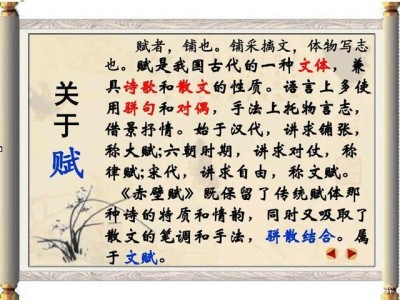 关于赋
赋者，铺也。铺采摛文，体物写志
也。赋是我国古代的一种文体，兼
具诗歌和散文的性质。语言上多使
用骈句和对偶，手法上托物言志，
借景抒情。始于汉代，讲求铺张，
称大赋;六朝时期，讲求对仗，称
律赋;宋代，讲求自由，称文赋。
《赤壁赋》既保留了传统赋体那
种诗的特质和情韵，同时又吸取了
散文的笔调和手法，骈散结合。属
于文赋。